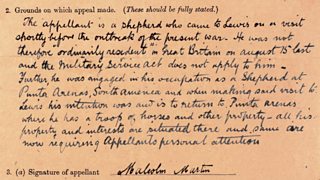 2. Grounds on which appeal made. (These should be fully stated.)
The appellant is a Shepherd who came to Lewis on a visit
shortly before the outbreak of the present war. He was not
therefore ordinarily resident in Great Britain on august 15th last
and the Military Service Act does not apply to him -
Further he was engaged in his occupation as a Shepherd at
Punta Arenas, South America and when making said visit to
Lewis his intention was and is to return to Punta Arenas
where he has a troop of horses and other property - all his
property and interests are situated there and same are
now requiring Appellants personal attention
3. (a) Signature of appellant Malcolm Martin